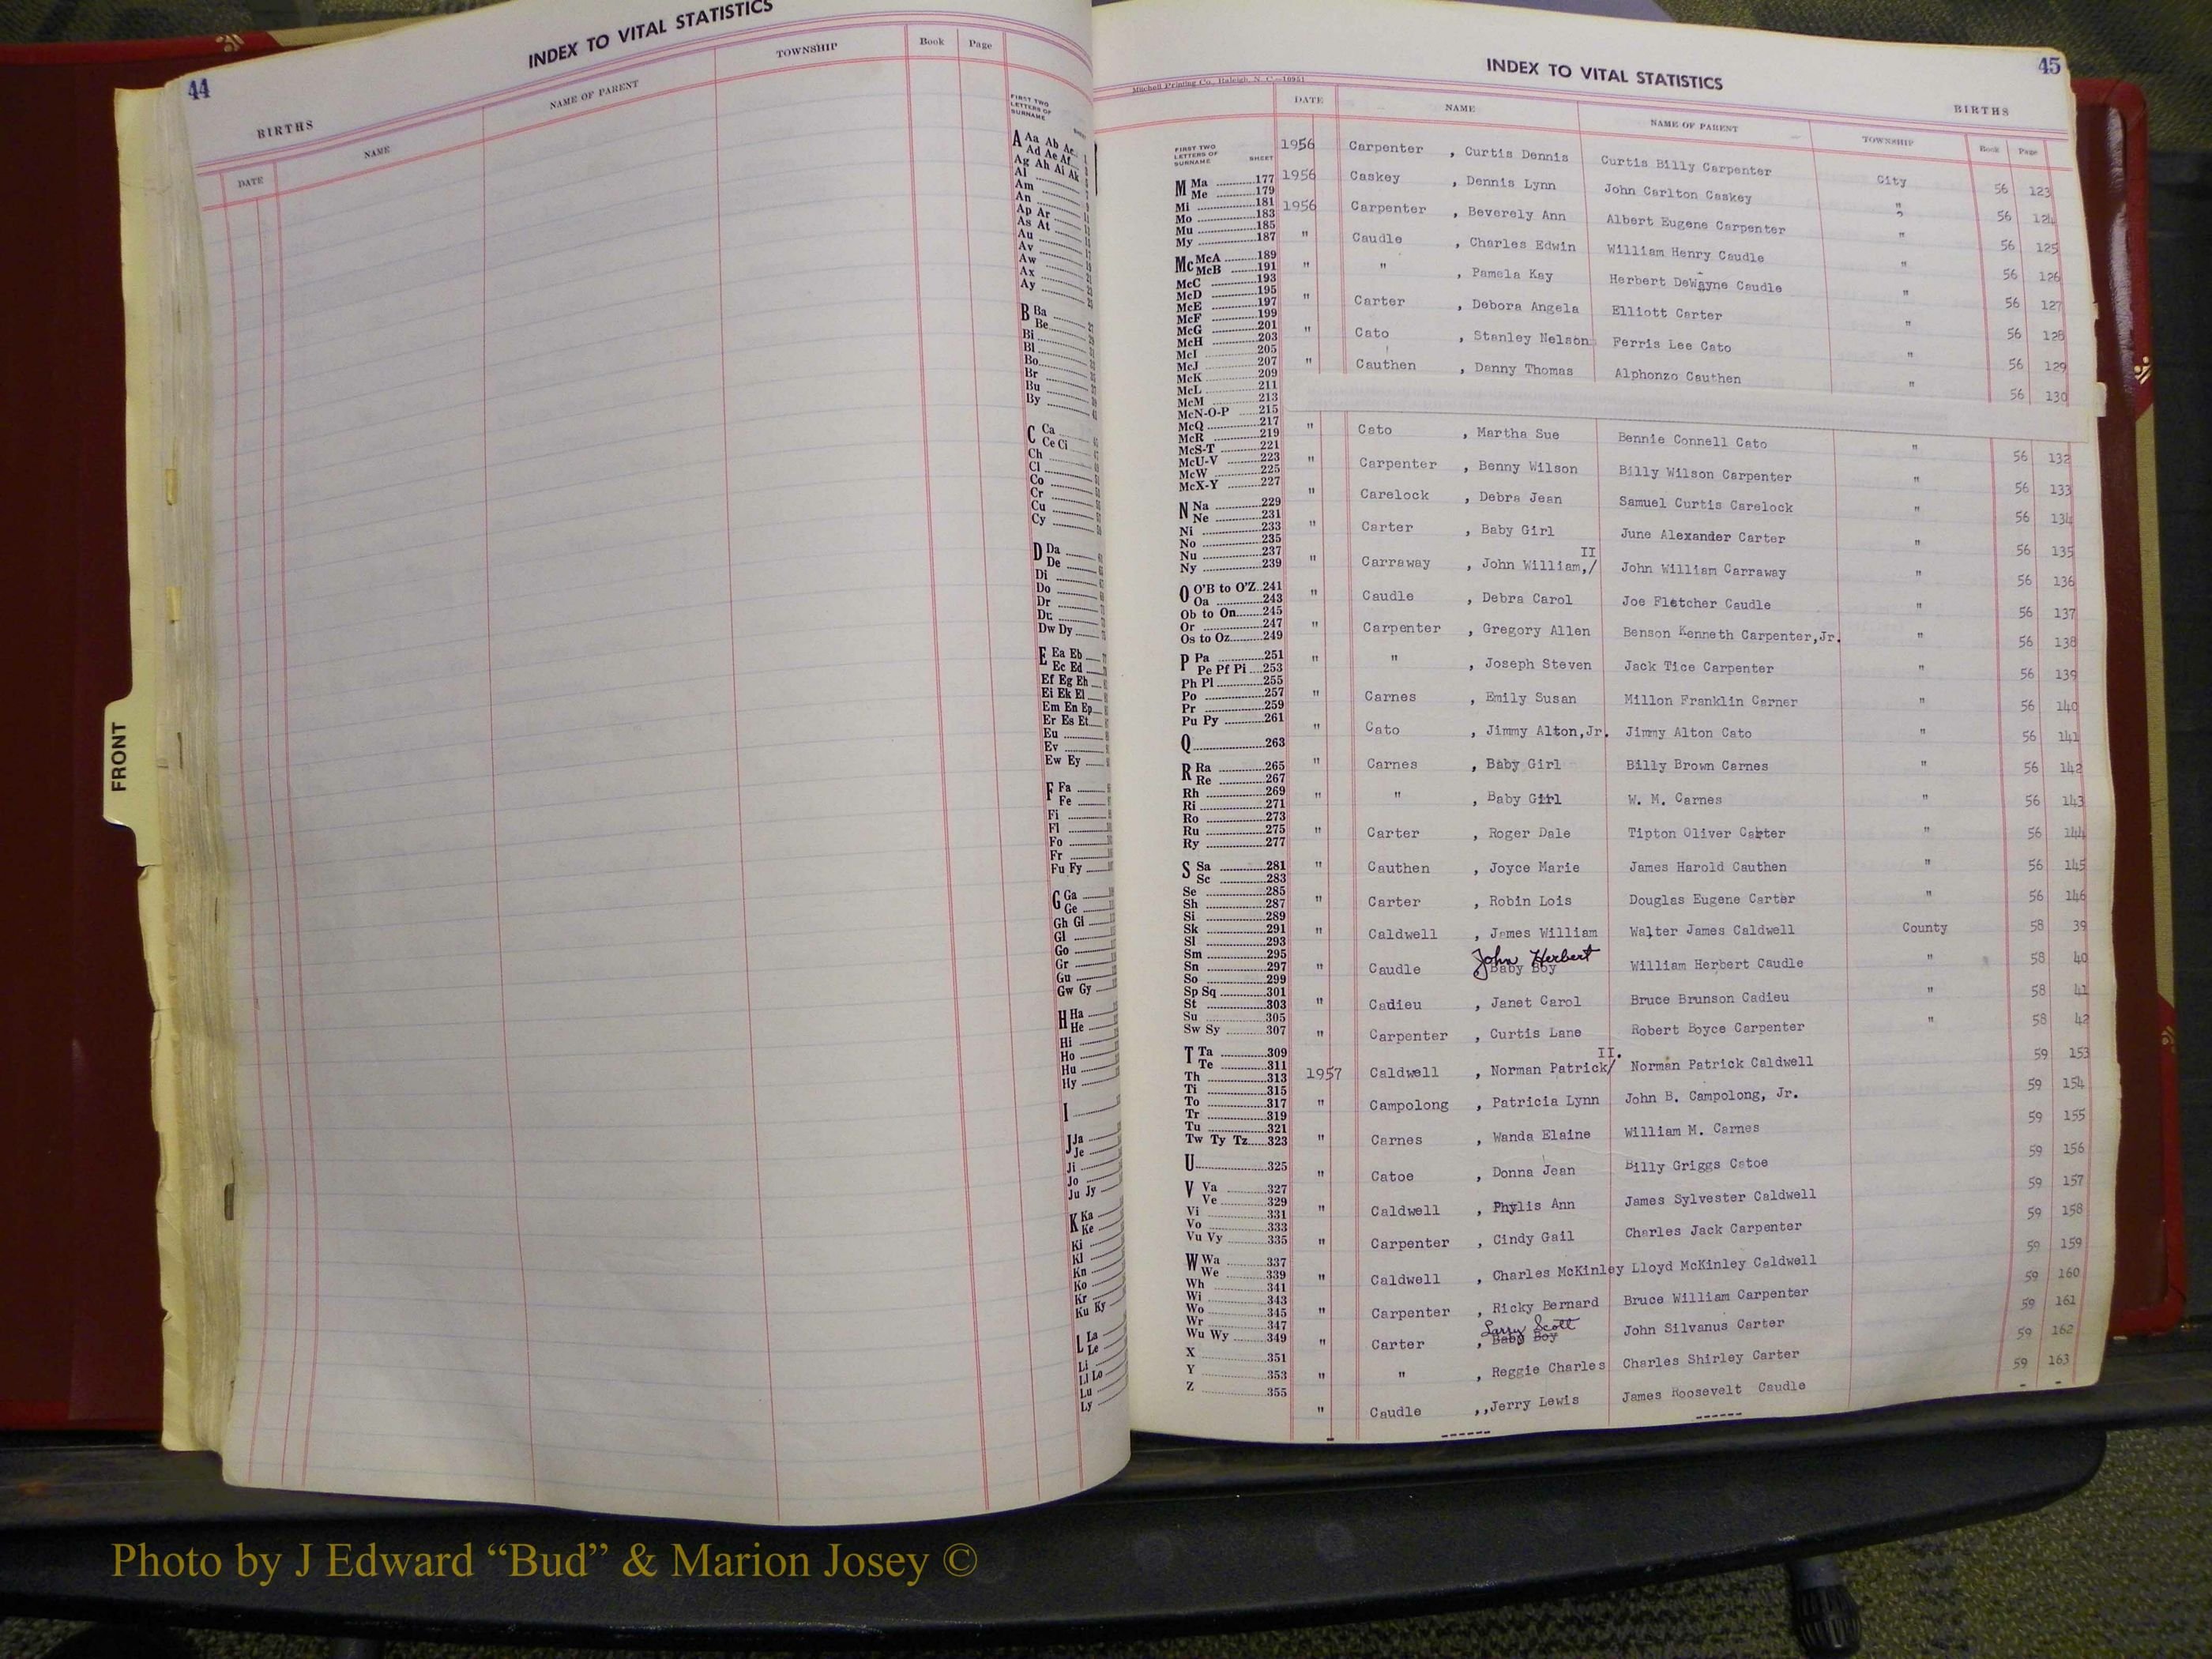 44
INDEX TO VITAL STATISTICS
BIRTHS
DATE NAME NAME OF PARENT TOWNSHIP Book Page
FIRST TWO
LETTERS OF
SURNAME
A Aa Ab Ac
Ad Ae Af
Ag Ah Ai Ak
Al
Am
An
Ap Ar
As At
Au
Av
Aw
Ax
Ay
B Ba
Be
Bi
Bl
Bo
Br
Bu
By
C Ca
Ce Ci
Ch
Cl
Co
Cr
Cu
Cy
D Da
De
Di
Do
Dr
Du
Dw Dy
E Ea Eb
Ec Ed
Ef Eg Eh
Ei Ek El
Em En Ep
Er Es Et
Eu
Ev
Ew Ey
F Fa
Fe
Fi
Fl
Fo
Fr
Fu Fy
G Ga
Ge
Gh Gi
Gl
Go
Gr
Gu
Gw Gy
H Ha
He
Hi
Ho
Hu
Hy
I
J Ja
Je
Ji
Jo
Ju Jy
K Ka
Ke
Ki
Kl
Kn
Ko
Kr
Ku Ky
L La
Le
Li
Ll Lo
Lu
Ly
FRONT
45
INDEX TO VITAL STATISTICS
BIRTHS
Mitchell Printing Co., Raleigh, N. C.—10951
DATE NAME NAME OF PARENT TOWNSHIP Book Page
FIRST TWO
LETTERS OF
SURNAME SHEET
M Ma 177
Me 179
Mi 181
Mo 183
Mu 185
My 187
Mc McA 189
McB 191
McC 193
McD 195
McE 197
McF 199
McG 201
McH 203
McI 205
McJ 207
McK 209
McL 211
McM 213
McN-O-P 215
McQ 217
McR 219
McS-T 221
McU-V 223
McW 225
McX-Y 227
N Na 229
Ne 231
Ni 233
No 235
Nu 237
Ny 239
O O'B to O'Z 241
Oa 243
Ob to On 245
Or 247
Os to Oz 249
P Pa 251
Pe Pf Pi 253
Ph Pl 255
Po 257
Pr 259
Pu Py 261
Q 263
R Ra 265
Re 267
Rh 269
Ri 271
Ro 273
Ru 275
Ry 277
S Sa 281
Sc 283
Se 285
Sh 287
Si 289
Sk 291
Sl 293
Sm 295
Sn 297
So 299
Sp Sq 301
St 303
Su 305
Sw Sy 307
T Ta 309
Te 311
Th 313
Ti 315
To 317
Tr 319
Tu 321
Tw Ty Tz 323
U 325
V Va 327
Ve 329
Vi 331
Vo 333
Vu Vy 335
W Wa 337
We 339
Wh 341
Wi 343
Wo 345
Wr 347
Wu Wy 349
X 351
Y 353
Z 355
1956 Carpenter , Curtis Dennis Curtis Billy Carpenter City 56 123
1956 Caskey , Dennis Lynn John Carlton Caskey " 56 124
1956 Carpenter , Beverely Ann Albert Eugene Carpenter " 56 125
" Caudle , Charles Edwin William Henry Caudle " 56 126
" " , Pamela Kay Herbert DeWayne Caudle " 56 127
" Carter , Debora Angela Elliott Carter " 56 128
" Cato , Stanley Nelson Ferris Lee Cato " 56 129
" Cauthen , Danny Thomas Alphonzo Cauthen " 56 130
" Cato , Martha Sue Bennie Connell Cato " 56 132
" Carpenter , Benny Wilson Billy Wilson Carpenter " 56 133
" Carelock , Debra Jean Samuel Curtis Carelock " 56 134
" Carter , Baby Girl June Alexander Carter " 56 135
" Carraway , John William,/ II John William Carraway " 56 136
" Caudle , Debra Carol Joe Fletcher Caudle " 56 137
" Carpenter , Gregory Allen Benson Kenneth Carpenter,Jr. " 56 138
" " , Joseph Steven Jack Tice Carpenter " 56 139
" Carnes , Emily Susan Millon Franklin Carner " 56 140
" Cato , Jimmy Alton,Jr. Jimmy Alton Cato " 56 141
" Carnes , Baby Girl Billy Brown Carnes " 56 142
" " , Baby Girl W. M. Carnes " 56 143
" Carter , Roger Dale Tipton Oliver Carter " 56 144
" Cauthen , Joyce Marie James Harold Cauthen " 56 145
" Carter , Robin Lois Douglas Eugene Carter " 56 146
" Caldwell , James William Walter James Caldwell County 58 39
" Caudle John Herbert Baby Boy William Herbert Caudle " 58 40
" Cadieu , Janet Carol Bruce Brunson Cadieu " 58 41
" Carpenter , Curtis Lane Robert Boyce Carpenter " 58 42
1957 Caldwell , Norman Patrick/ II. Norman Patrick Caldwell 59 153
" Campolong , Patricia Lynn John B. Campolong, Jr. 59 154
" Carnes , Wanda Elaine William M. Carnes 59 155
" Catoe , Donna Jean Billy Griggs Catoe 59 156
" Caldwell , Phylis Ann James Sylvester Caldwell 59 157
" Carpenter , Cindy Gail Charles Jack Carpenter 59 158
" Caldwell , Charles McKinley Lloyd McKinley Caldwell 59 159
" Carpenter , Ricky Bernard Bruce William Carpenter 59 160
" Carter , Larry Scott Baby Boy John Silvanus Carter 59 161
" " , Reggie Charles Charles Shirley Carter 59 162
" Caudle ,,Jerry Lewis James Roosevelt Caudle 59 163
- ------ ------ - -
Photo by J Edward “Bud” & Marion Josey ©